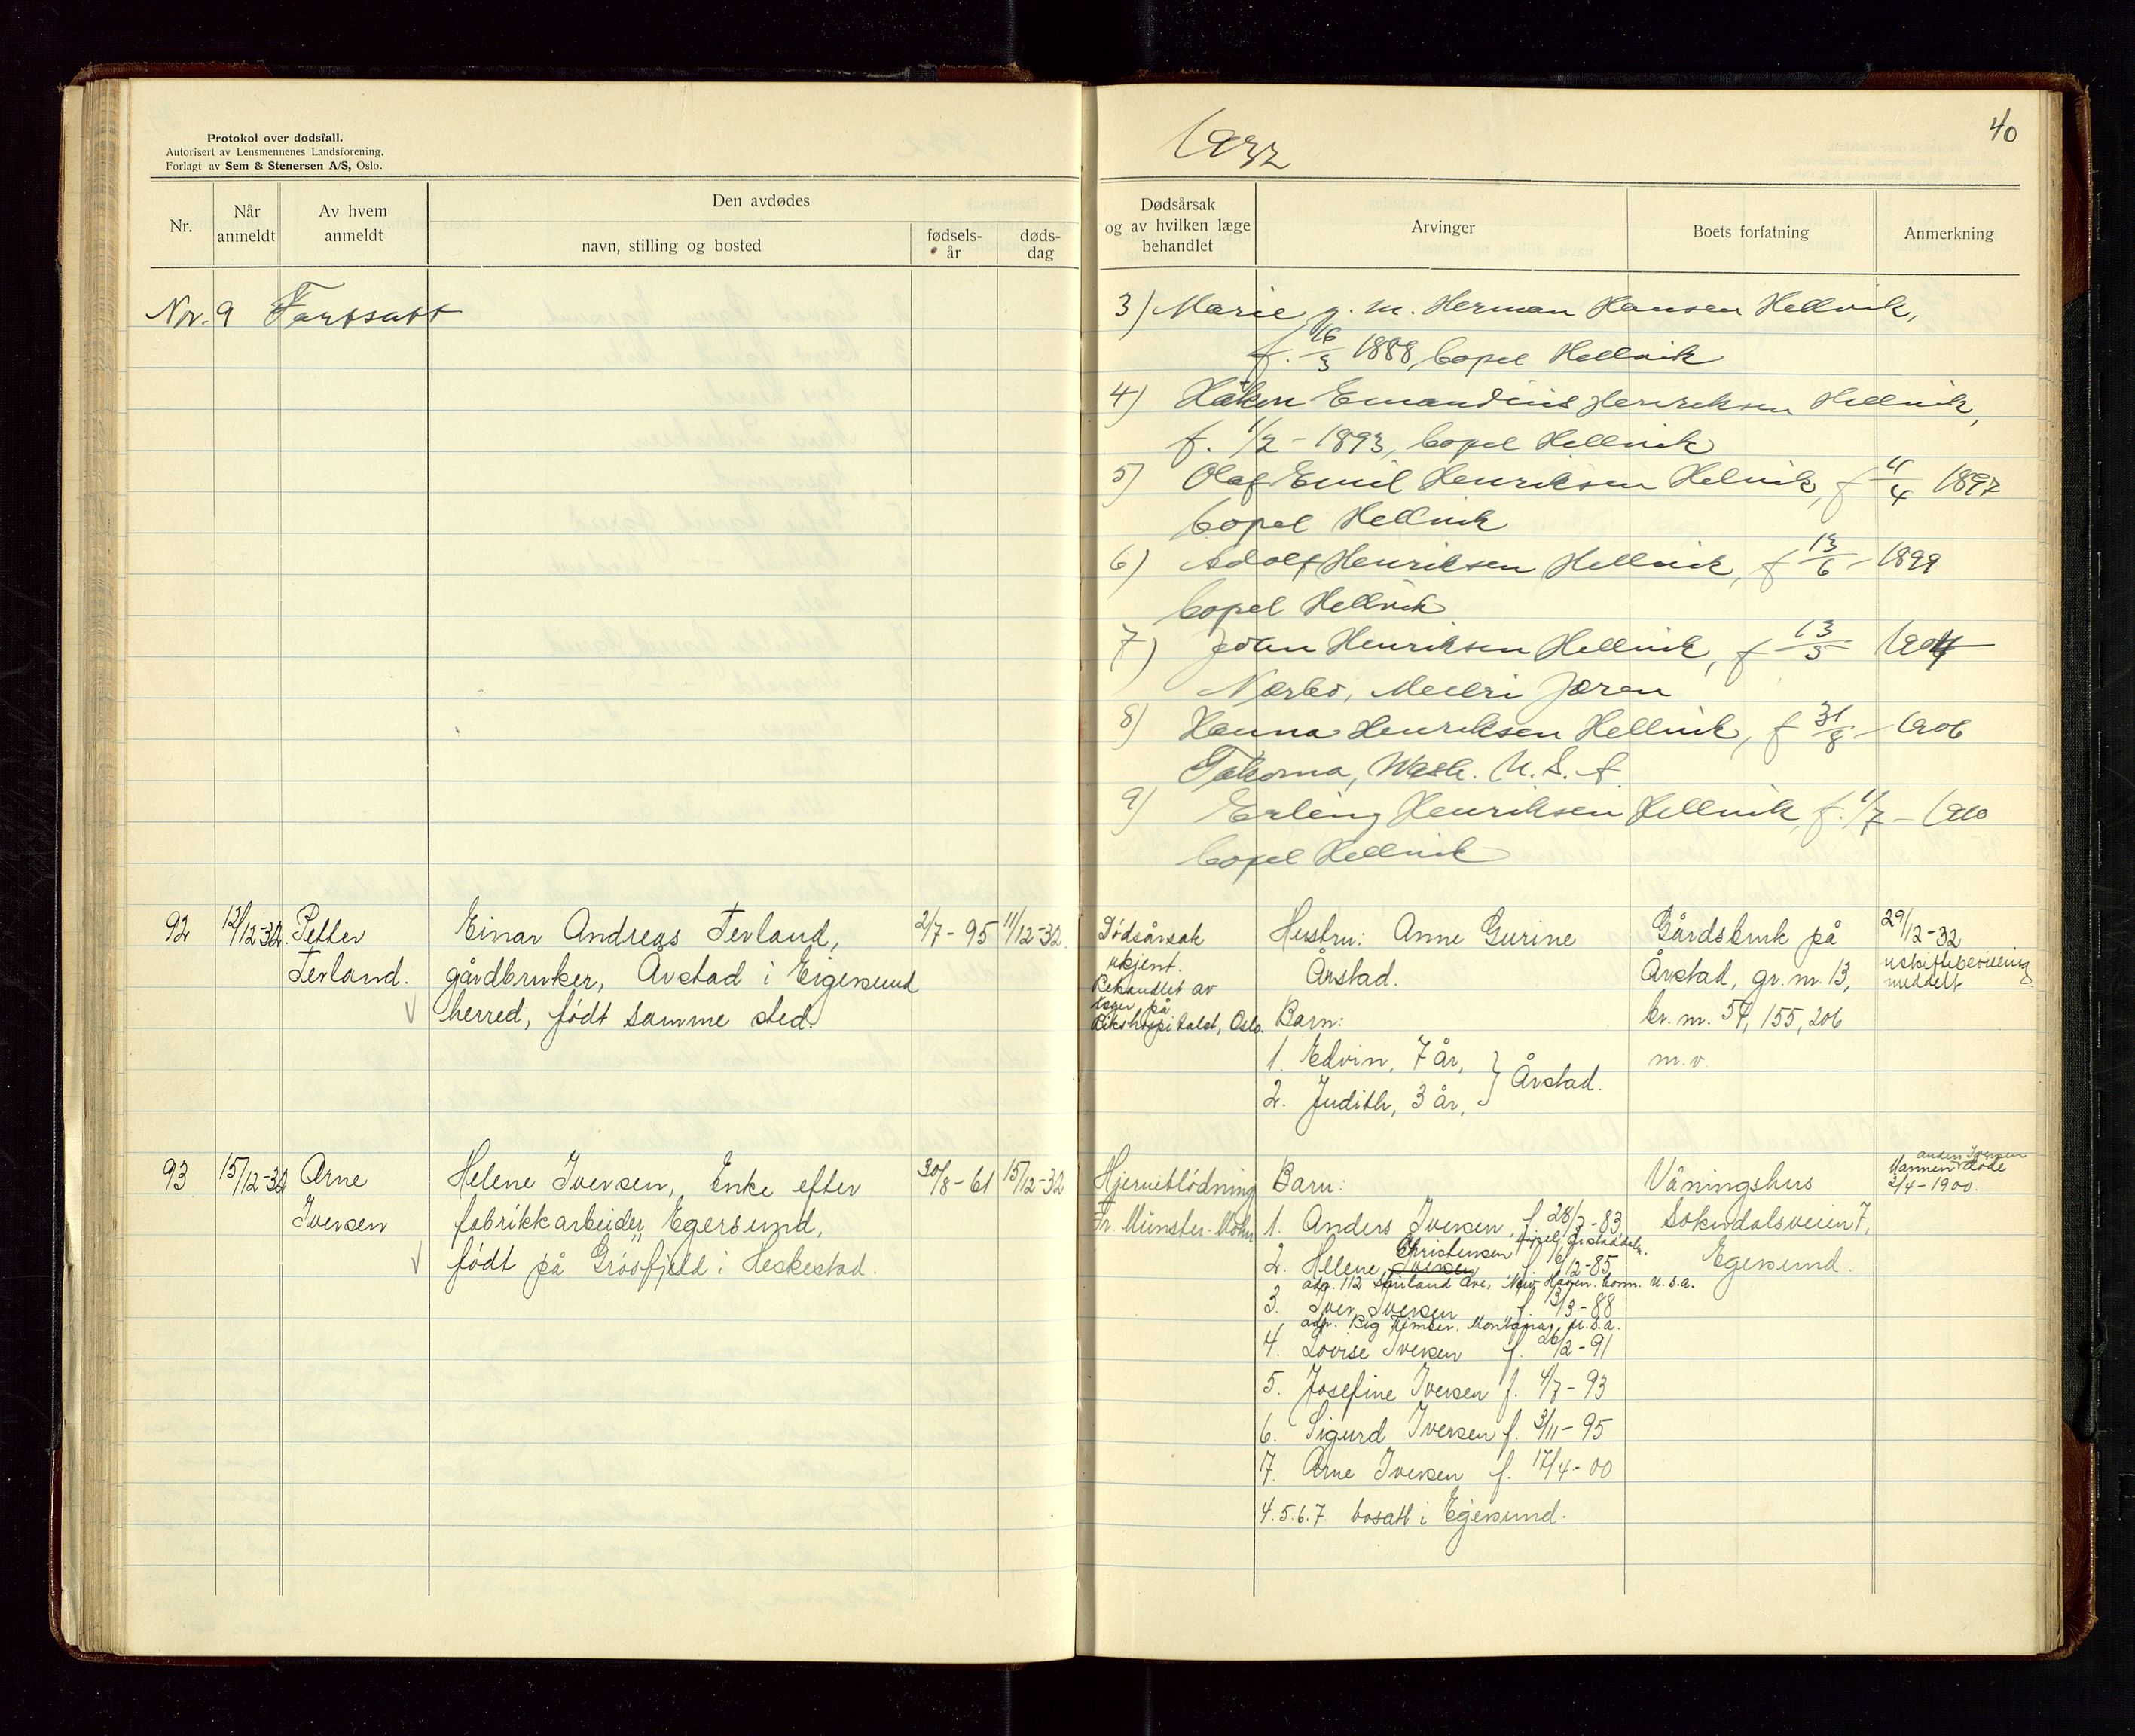 Protokol over dødsfall.
Autorisert av Lensmennenes Landsforening.
Forlagt av Sem & Stenersen A/S, Oslo.
Nr.
Når anmeldt
Av hvem anmeldt
Den avdødes
navn, stilling og bosted
fødsels-år
døds-dag
Nr. 9 Fortsatt
92 12/12-32. Petter Einar Andreas Terland, 2/7-95 11/12-32.
Terland. gårdbruker, Årstad i Eigersund
herred, født samme sted.
93 15/12-32 Arne Helene Iversen, Enke efter 30/8-61 15/12-32
Iversen fabrikkarbeider, Egersund,
født på Grøsfjeld i Heskestad.
1932
40
Dødsårsak og av hvilken læge behandlet
Arvinger
Boets forfatning
Anmerkning
3) Marie g. m. Herman Hansen Hellvik,
f. 16/3 1888, Hellvik
4) Håkon Henriksen Hellvik,
f. 1/2 - 1893, Hellvik
5) Olaf Emil Henriksen Helvik, f 11/4 1897
Hellvik
6) Adolf Henriksen Hellvik, f 13/6 - 1899
Hellvik
7) Johan Henriksen Hellvik, f 13/5 1904
Nærbø, Jæren
8) Hanna Henriksen Hellvik, f 31/8 - 1906
Takoma, Wash. U. S. A
9) Erling Henriksen Hellvik, f. 1/7 - 1910
Hellvik
Dødsårsak
ukjent.
Behandlet av
læger på
Rikshospitalet, Oslo.
Hustru: Anne Gurine
Årstad.
Barn:
1. Edvin, 7 år,
2. Judith, 3 år, } Årstad.
Gårdsbruk på
Årstad, gr. nr. 13,
br. nr. 54, 155, 206
m.v.
29/12-32
uskiftebevilling
meddelt
Hjerneblødning
Dr. Münster-Mohn
Barn:
1. Anders Iversen, f. 28/7-83
Årstaddaln.
Christensen
2. Helene Iversen f. 16/12-85
adr. 112 Ave, New Haven. Conn. U.S.A.
3. Iver Iversen f. 13/3-88
adr. Big Timber, Montana, U.S.A.
4. Lovise Iversen f. 26/2-91
5. Josefine Iversen f. 4/7-93
6. Sigurd Iversen f. 3/11-95
7. Arne Iversen f. 17/4-00
4.5.6.7 bosatt i Egersund.
Våningshus
Sokndalsveien 7,
Egersund.
Anders Iversen
Mannen døde
2/4-1900.